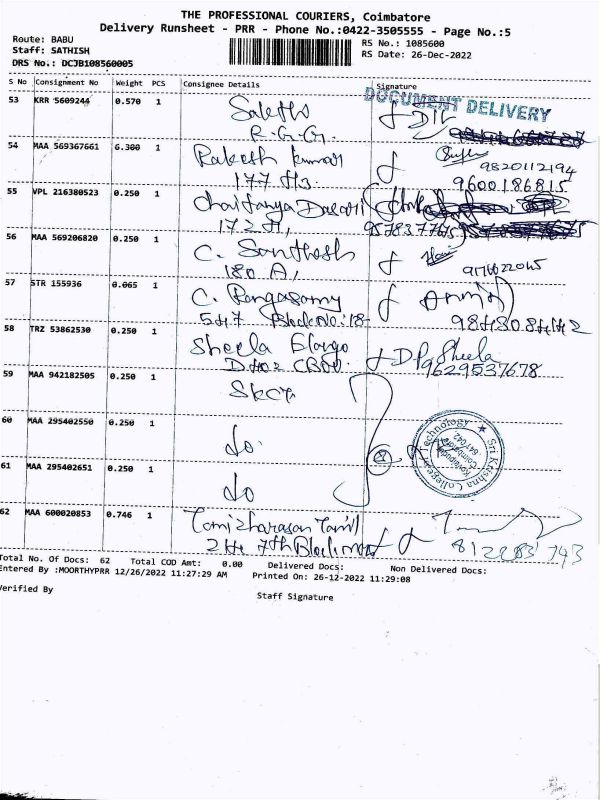 THE PROFESSIONAL COURIERS, Coimbatore
Delivery Runsheet - PRR - Phone No.:0422-3505555 - Page No.:5
Route: BABU
Staff: SATHISH
DRS No.: DCJB108560005
RS No.: 1085600
RS Date: 26-Dec-2022
S No Consignment No Weight PCS Consignee Details Signature
DOCUMENT DELIVERY
53 KRR 5609244 0.570 1
R.G.G.
54 MAA 569367661 6.300 1 Rakesh Kumar
177 H3
9820112194
9600186815
55 VPL 216380523 0.250 1 Chaitanya Dasari
172 H,
9578377675
56 MAA 569206820 0.250 1 C. Santhosh
180 A,
57 STR 155936 0.065 1 C. Rangasamy
547 Block No: 18
58 TRZ 53862530 0.250 1 Sheela Elango
D402 CBOU
Sheela
9629537678
59 MAA 942182505 0.250 1 SKCT
60 MAA 295402550 0.250 1 do
61 MAA 295402651 0.250 1 do
Sri Krishna College of Technology
Kovaipudur
Coimbatore
641 042
62 MAA 600020853 0.746 1 Tamizharasan Tamil
24 7th Block
Total No. Of Docs: 62 Total COD Amt: 0.00 Delivered Docs: Non Delivered Docs:
Entered By :MOORTHYPRR 12/26/2022 11:27:29 AM Printed On: 26-12-2022 11:29:08
Verified By
Staff Signature